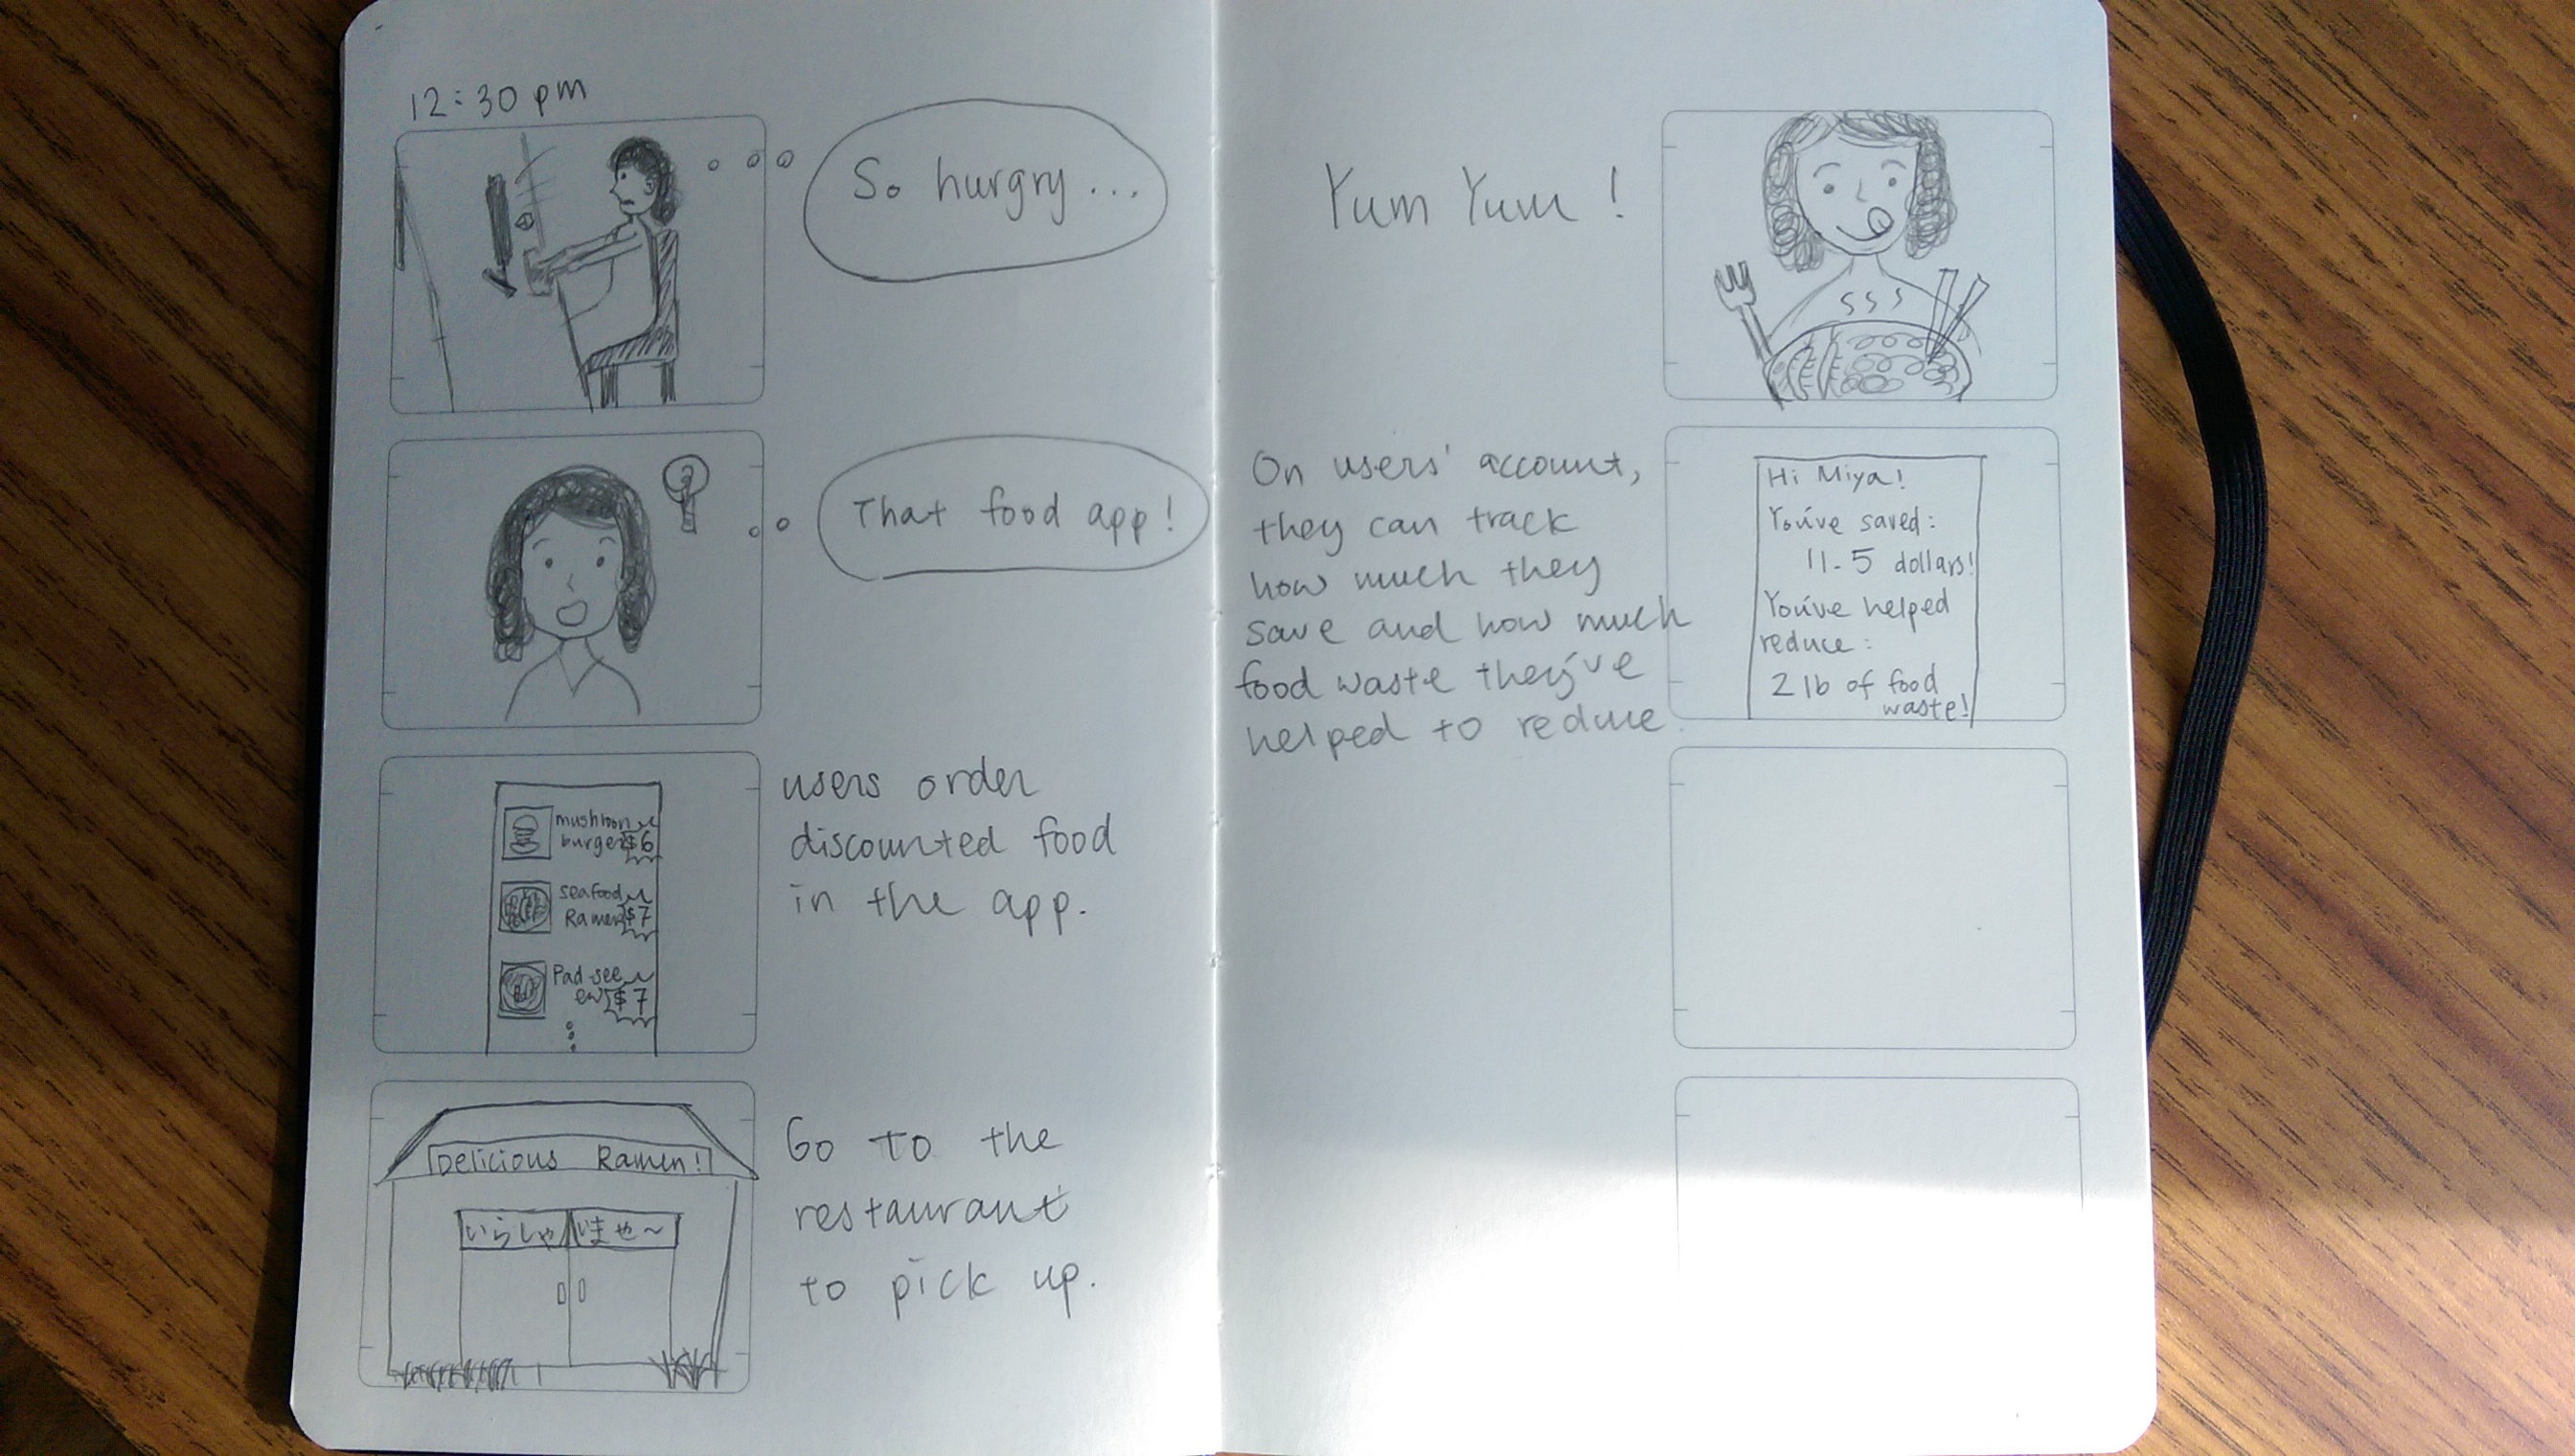 12:30 pm
So hungry...
That food app!
mushroom
burger $6
seafood
Ramen $7
Pad see
ew $7
users order
discounted food
in the app.
Delicious Ramen!
いらしゃいませ〜
Go to the
restaurant
to pick up.
Yum Yum!
On users' account,
they can track
how much they
save and how much
food waste they've
helped to reduce.
Hi Miya!
You've saved:
11.5 dollars!
You've helped
reduce:
2 lb of food
waste!